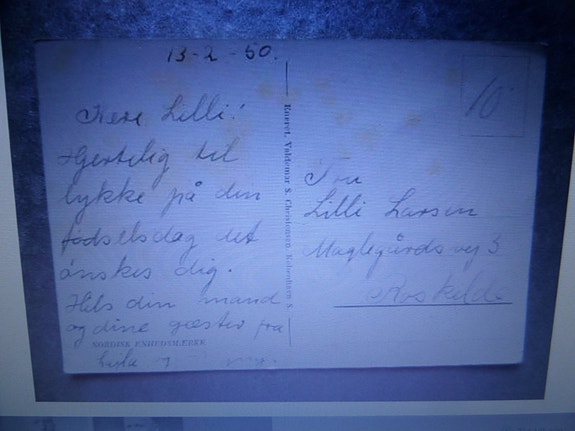 13-2-60.
Kære Lilli!
Hjertelig til
lykke på din
fødselsdag det
ønskes dig.
Hils din mand
og dine gæster fra
NORDISK ENHEDSMÆRKE
Eneret. Valdemar S. Christensen. København S.
10
Fru
Lilli Larsen
Maglegårdsvej 3
Roskilde